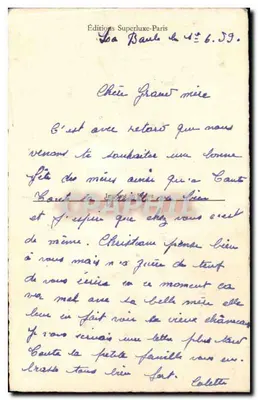 Éditions Superluxe-Paris
La Baule le 1er 6.59.
Chère Grand mère
C'est avec retard que nous
venons te souhaiter une bonne
fête des mères ainsi qu'a Tante
Tout va bien
et j'espère que chez vous c'est
de même. Christiane pense bien
à vous mais n'a guère de temps
de vous écrire en ce moment ça
va mal avec sa belle mère elle
leur en fait voir la vieille
Je vous écrirais une lettre plus tard
Toute la petite famille vous em-
brasse tous bien fort.
Colette